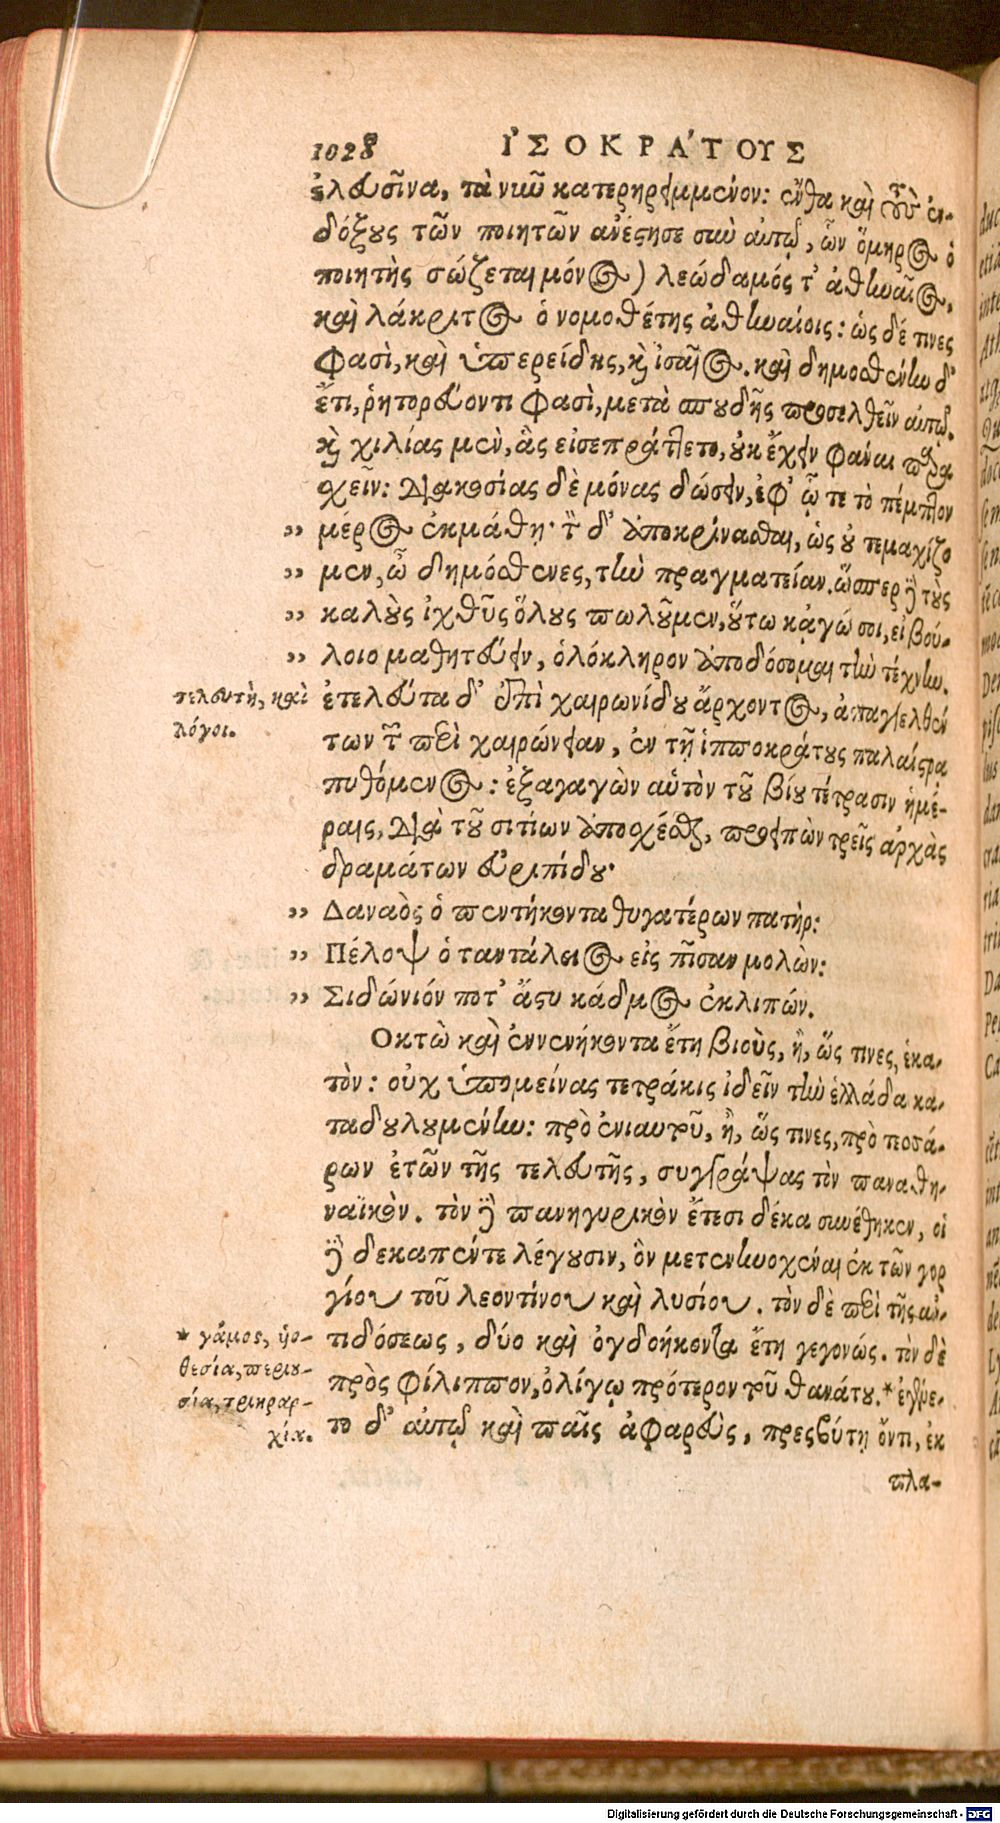 1028 ἸΣΟΚΡΆΤΟΥΣ
ἐλευσῖνα, τὰ νιῦ κατερηρειμμένον: ἔνθα καὶ τοὺς ἐν-
δόξους τῶν ποιητῶν ἀνέστησε σιω αὐτῷ, ὧν ὅμηρος ὁ
ποιητὴς σώζεται μόνος) λεώδαμός τ' ἀθηναῖος,
καὶ λάκριτος ὁ νομοθέτης ἀθηναίοις: ὡς δέ τινες
φασὶ, καὶ ὑπερείδης, καὶ ἰσαῖος. καὶ δημοσθένην δ'
ἔτι, ῥητορεύοντι φασὶ, μετὰ σπουδῆς προσελθεῖν αὐτῷ.
καὶ χιλίας μὲν, ἃς εἰσεπράττετο, οὐκ ἔχειν φάναι παρα
χεῖν: διακοσίας δὲ μόνας δώσειν, ἐφ' ᾧ τε τὸ πέμπτον
" μέρος ἐκμάθῃ· τὸν δ' ἀποκρίνασθαι, ὡς οὐ τεμαχίζο
" μεν, ὦ δημόσθενες, τὴν πραγματείαν. ὥσπερ δὲ τοὺς
" καλοὺς ἰχθῦς ὅλους πωλοῦμεν, οὕτω κἀγώ σοι, εἰ βού-
" λοιο μαθητεύειν, ὁλόκληρον ἀποδόσομαι τὴν τέχνην.
τελευτὴ, καὶ
λόγοι.
ἐτελεύτα δ' ἐπὶ χαιρωνίδου ἄρχοντος, ἀπαγγελθέν
των τῶν περὶ χαιρώνειαν, ἐν τῇ ἱπποκράτους παλαίστρα
πυθόμενος: ἐξαγαγὼν αὑτὸν τοῦ βίου τέτρασιν ἡμέ-
ραις, διὰ τοῦ σιτίων ἀποσχέσθαι, προειπὼν τρεῖς ἀρχὰς
δραμάτων εὐριπίδου·
" Δαναὸς ὁ πεντήκοντα θυγατέρων πατὴρ:
" Πέλοψ ὁ ταντάλειος εἰς πῖσαν μολὼν:
" Σιδώνιόν ποτ' ἄστυ κάδμος ἐκλιπών.
Οκτὼ καὶ ἐννενήκοντα ἔτη βιοὺς, ἢ, ὥς τινες, ἑκα-
τὸν: οὐχ ὑπομείνας τετράκις ἰδεῖν τὴν ἑλλάδα κα-
ταδουλουμένην: πρὸ ἐνιαυτοῦ, ἢ, ὥς τινες, πρὸ τεσσά-
ρων ἐτῶν τῆς τελευτῆς, συγγράψας τὸν παναθη-
ναϊκὸν. τὸν δὲ πανηγυρικὸν ἔτεσι δέκα συνέθηκεν, οἱ
δὲ δεκαπέντε λέγουσιν, ὃν μετενηνοχέναι ἐκ τῶν γορ
γίου τοῦ λεοντίνου καὶ λυσίου. τὸν δὲ περὶ τῆς ἀν-
τιδόσεως, δύο καὶ ὀγδοήκοντα ἔτη γεγονώς. τὸν δὲ
πρὸς φίλιππον, ὀλίγῳ πρότερον τοῦ θανάτου. * ἐγένε-
το δ' αὐτῷ καὶ παῖς ἀφαρεὺς, πρεσβύτῃ ὄντι, ἐκ
* γάμος, ὑο-
θεσία, περιου-
σία, τριηραρ-
χία.
πλα-
Digitalisierung gefördert durch die Deutsche Forschungsgemeinschaft - DFG